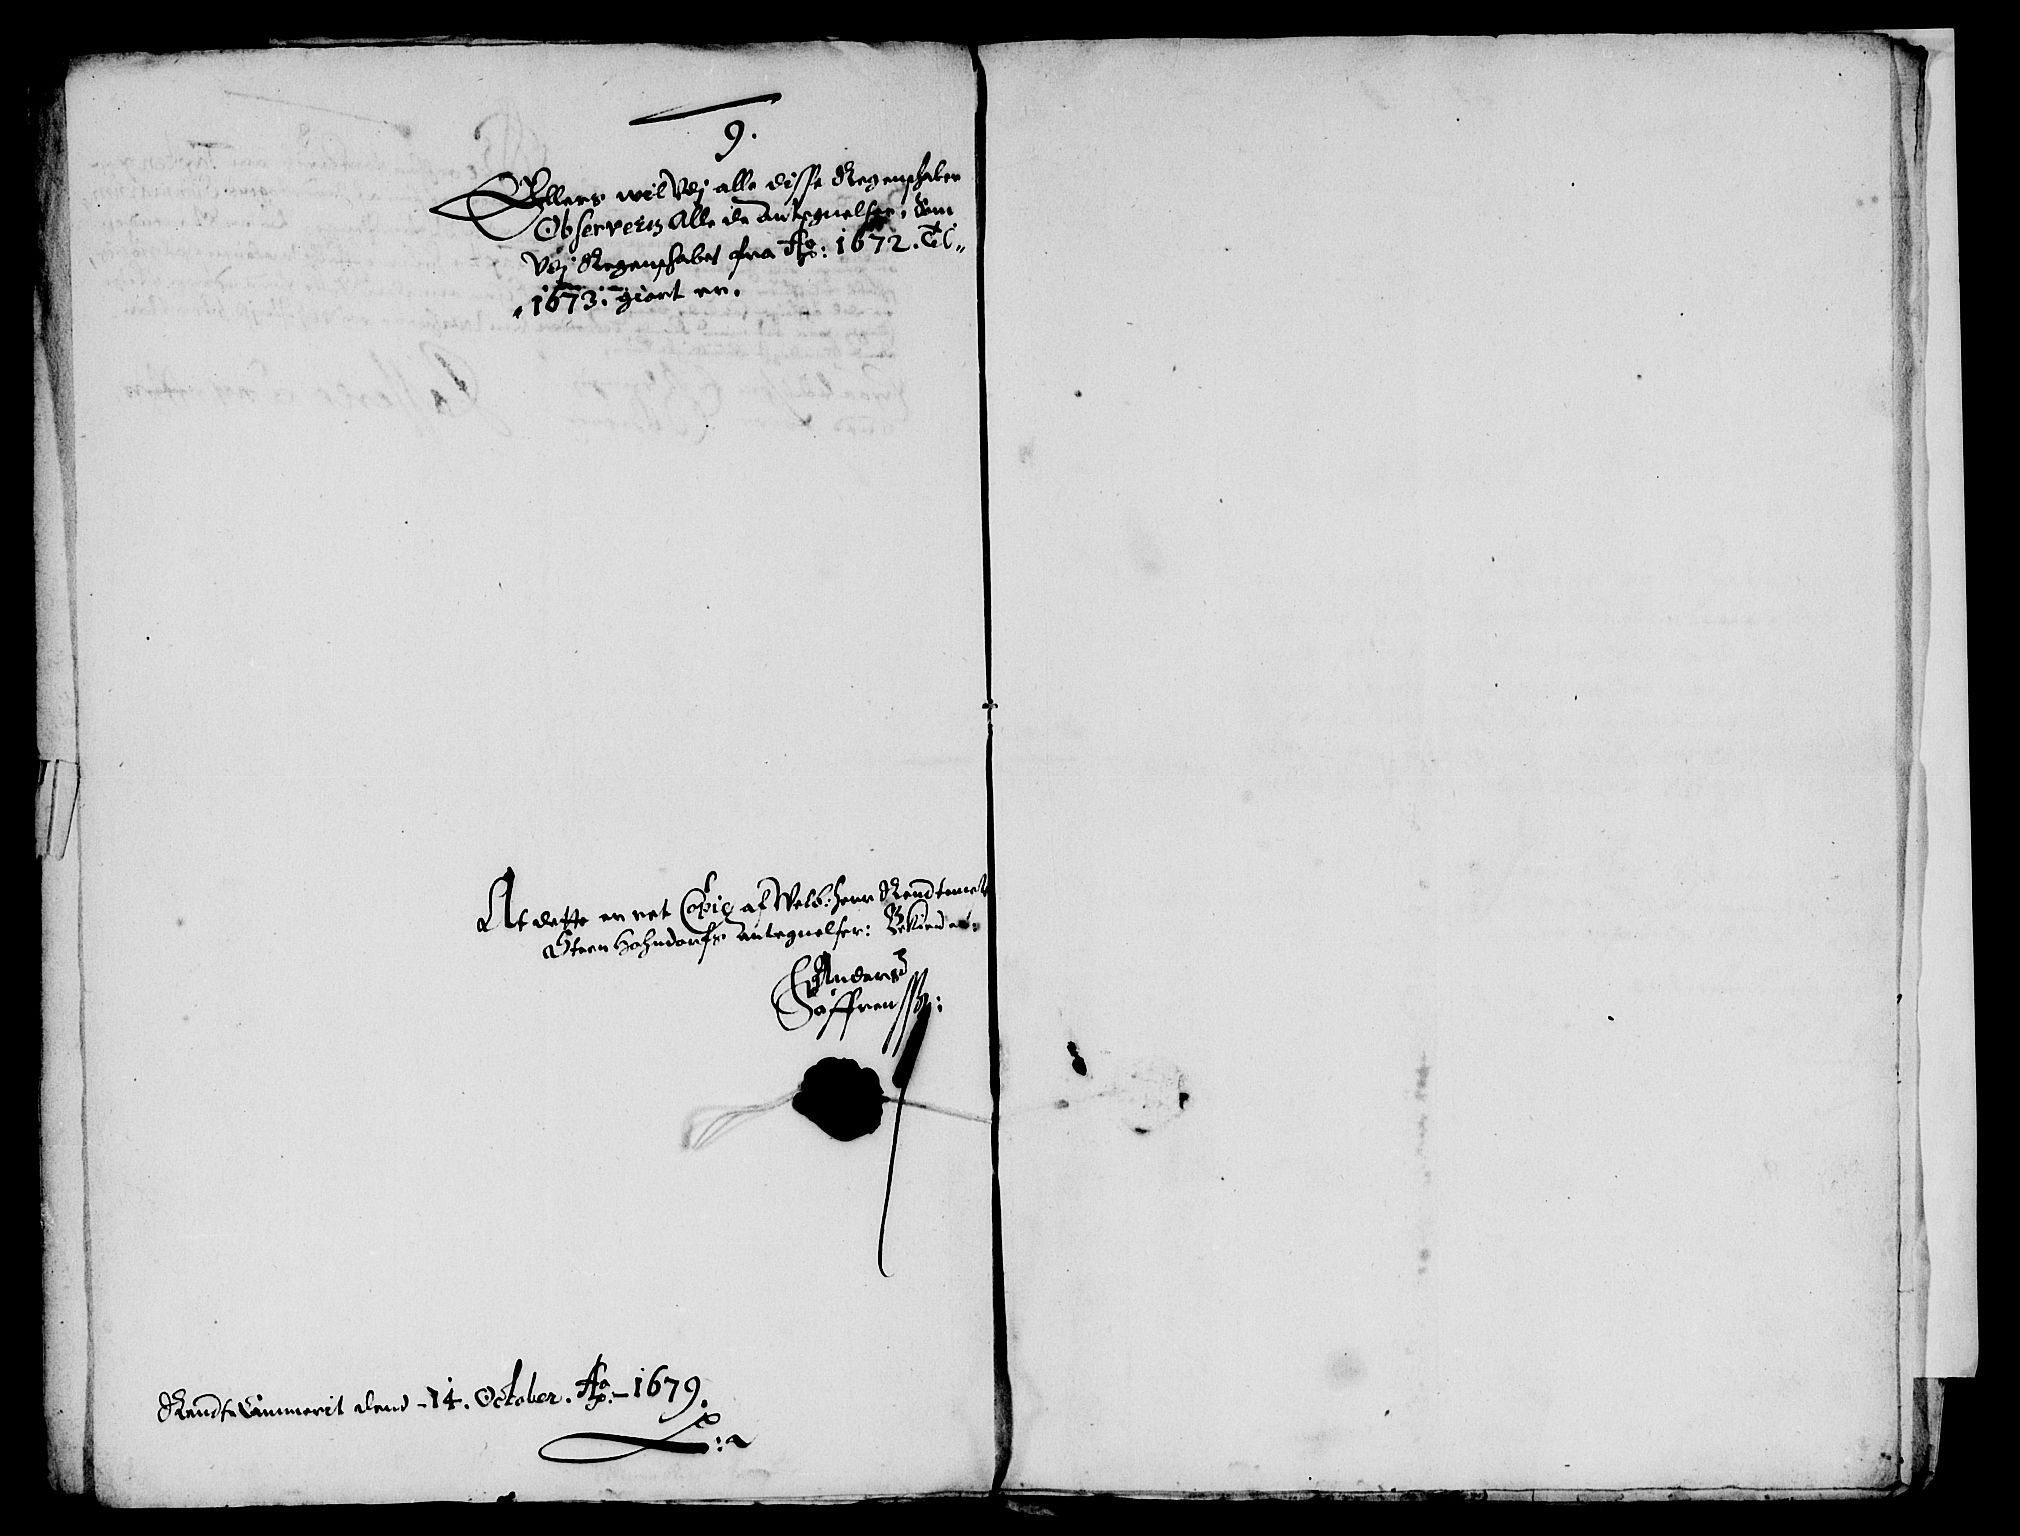 9.
Ellers wil Vdj alle disse Regenschaber
Observeris Alle de antegnelser, Som
Vdj Regenschabet fra Ao: 1672. Til
1673. giort er.
At dette er ret Copie af Welb: herr Rendtmester
Steen Hohndorfs antegnelser: Bekiender
Anders
Søffrenssøn:
Rendte Cammerit dend 14. October. Ao. 1679.